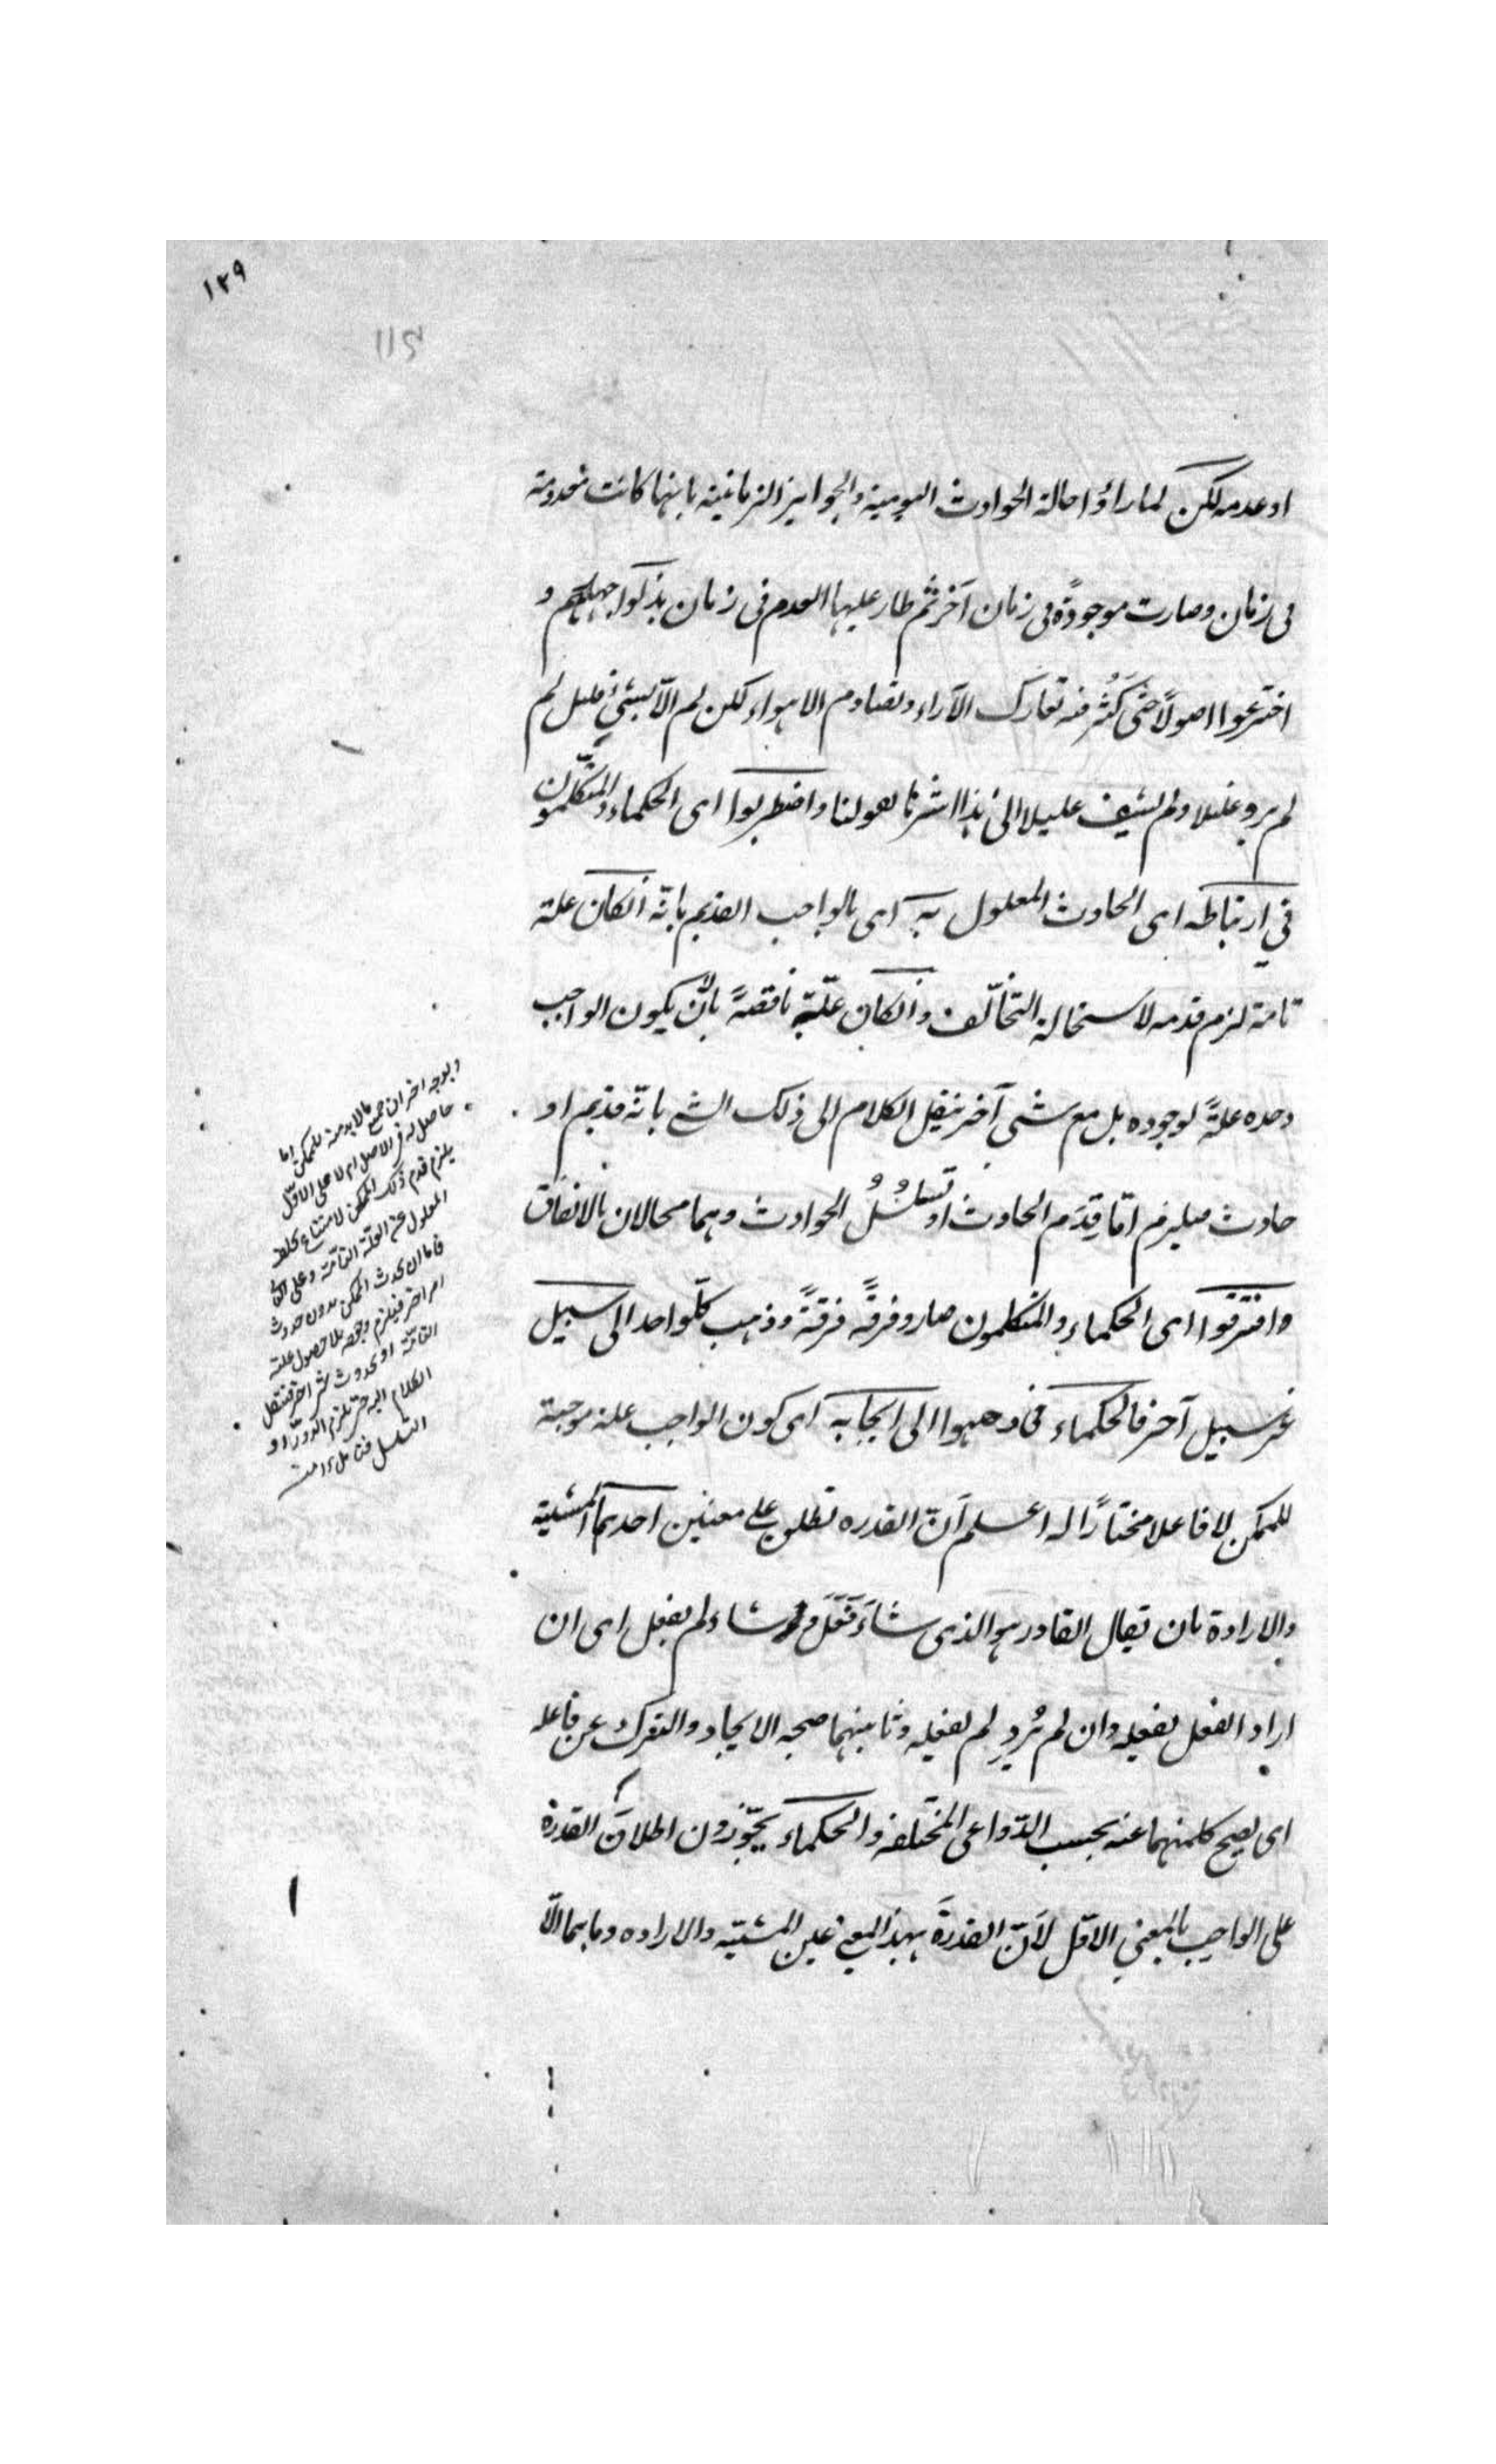 ١٢٩
115
او عدمه لكن لما راؤا حالة الحوادث اليومية والجوايز الزمانية بانها كانت معدومة
فى زمان وصارت موجودةً فى زمان آخر ثم طار عليها العدم فى زمان بذكوا جهلهم و
اخترعوا اصولاً حتى كَثُر فيه تعارك الآراء وتصادم الاهواء لكن لم الا لشئ قليل لم
لم يرو غليلا ولم يشف عليلا الى هذا اشرنا بقولنا واضطربوا اى الحكماء والمتكلمون
في ارتباطه اى الحادث المعلول به اى بالواجب القديم بانّه انكان علة
تامة لزم قدمه لاستحالة التخلّف وانكان علّة ناقصةً بانْ يكون الواجب
وحده علةً لوجوده بل مع شى آخر ينقل الكلام الى ذلك الشى بانّه قديم او
حادث فيلزم امّا قِدَم الحادث او تسلسُلُ الحوادث وهما محالان بالاتفاق
وافترقوا اى الحكماء والمتكلمون صاروا فرقةً فرقةً وذهب كلّ واحد الى سبيل
غير سبيل آخر فالحكماء ذهبوا الى ايجابه اى كون الواجب علة موجبة
للممكن لا فاعلا مختارًا له اعلم اَنّ القدره تطلق على معنيين احدهما المشيّة
والارادة بان يقال القادر هو الذى شاءَ فَفَعَلَ و شاء ولم يفعل اى ان
اراد الفعل يفعله وان لم يُرِدِ لم يفعله وثانيهما صحة الايجاد والترك عن فاعله
اى يصح كل منهما عنه بحسب الدّواعى المختلفه والحكماء يجوّزون اطلاقَ القدرة
على الواجب بالمعنى الاوّل لاَنّ القدرةَ بهذا المعنى عين المشيّة والاراده وما هما الّا
وبوجه اخر ان جميع مالا بد منه للممكن اما
حاصل له فى الاصل ام لا على الاوّل
يلزم قدم ذلك الممكن لامتناع تخلف
المعلول عن العلّة التامّة وعلى الثانى
فاما ان يحدث الممكن بدون حدوث
امر اخر فيلزم وجوده بلا حصول علته
التامّة او بحدوث شى اخر فننقل
الكلام اليه حتى يلزم الدّور او
التسلسل فتامل منه